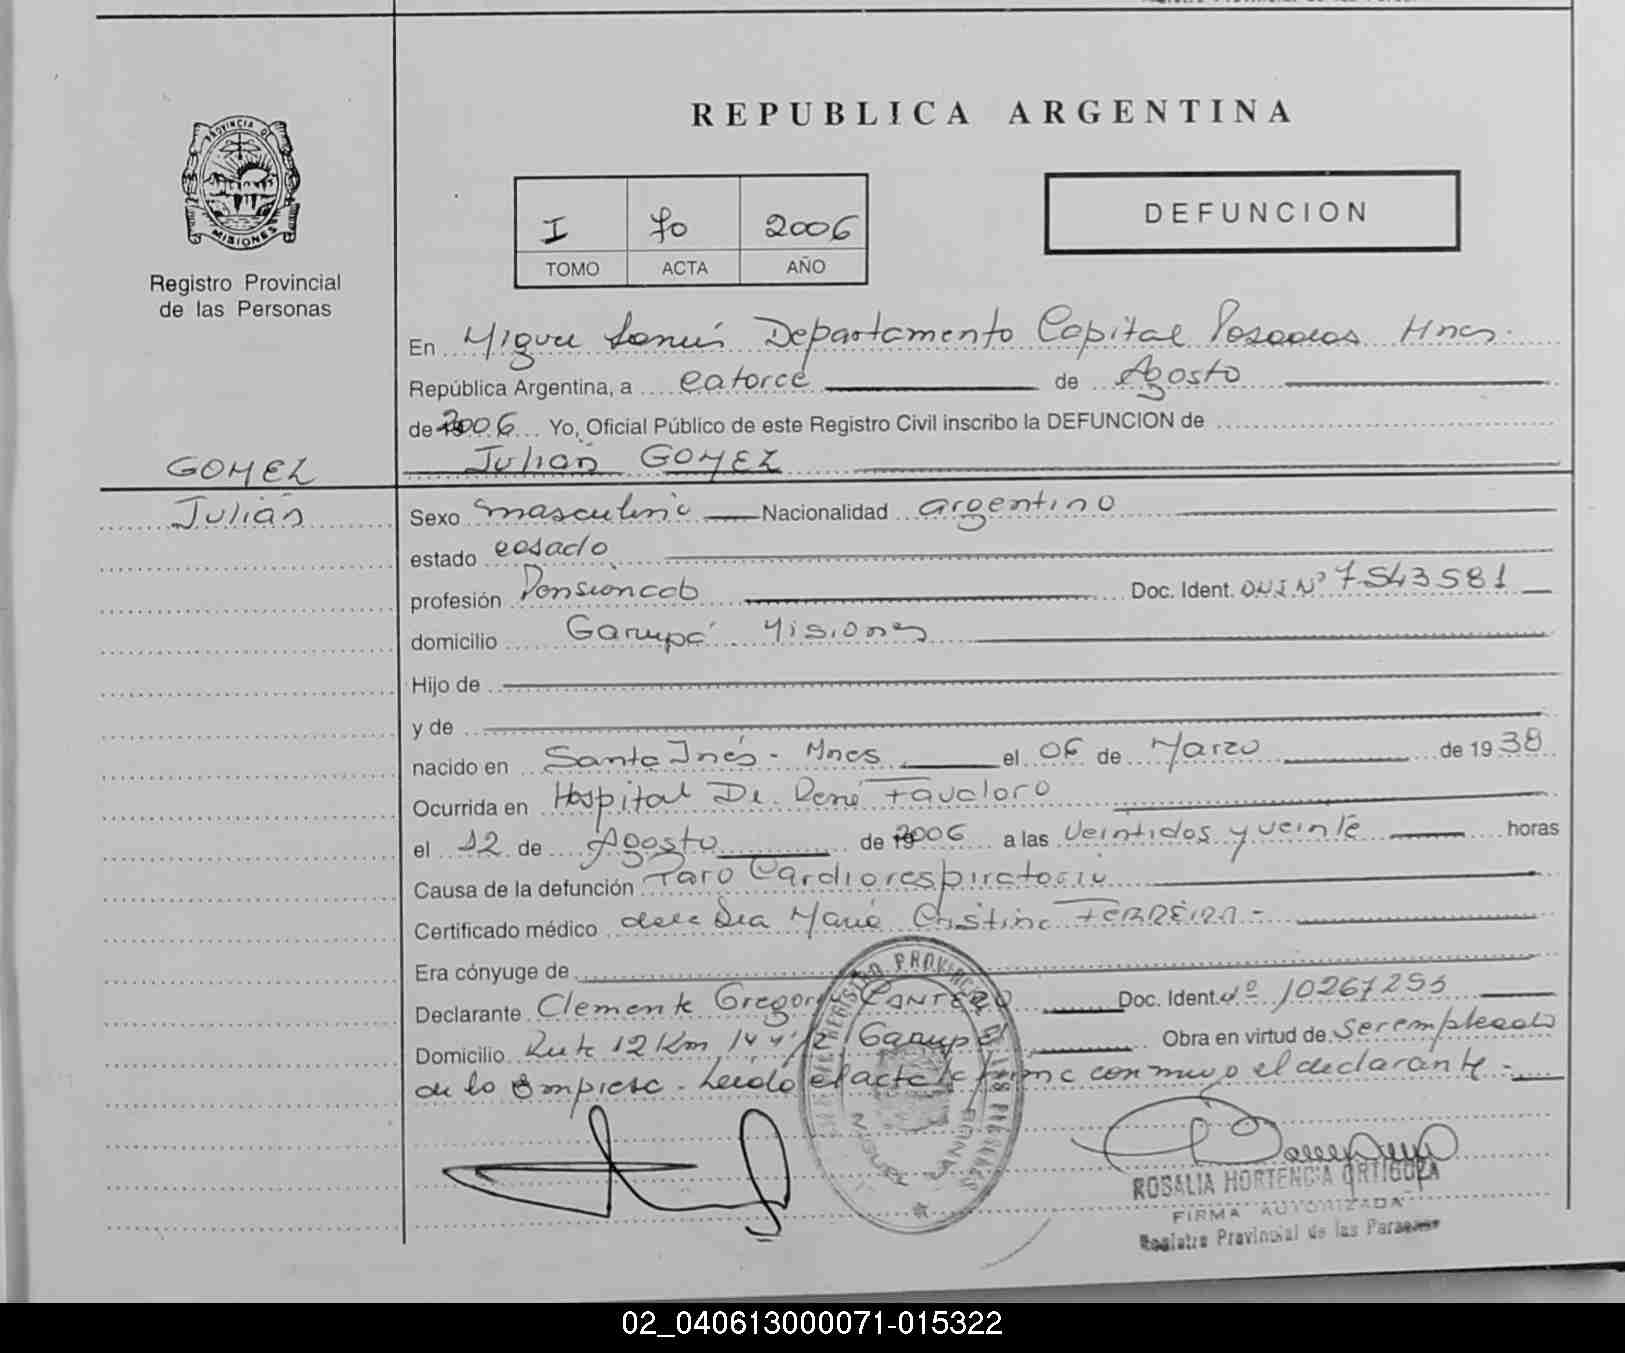 REPUBLICA ARGENTINA
PROVINCIA DE
MISIONES
Registro Provincial
de las Personas
I 70 2006
TOMO ACTA AÑO
DEFUNCION
En Miguel Lanús Departamento Capital Posadas Mnes.
República Argentina, a catorce de Agosto
de 2006 Yo, Oficial Público de este Registro Civil inscribo la DEFUNCION de
GOMEZ Julián GOMEZ
Julián Sexo masculino Nacionalidad argentino
estado casado
profesión Pensionado Doc. Ident. DNI Nº 7543581
domicilio Garupá Misiones
Hijo de
y de
nacido en Santa Inés - Mnes el 06 de Marzo de 1938
Ocurrida en Hospital Dr. René Favaloro
el 12 de Agosto de 2006 a las veintidos y veinte horas
Causa de la defunción Paro Cardiorespiratorio
Certificado médico de la Dra María Cristina FERREIRA -
Era cónyuge de
Declarante Clemente Gregorio CANTERO Doc. Ident. Nº 10267253
Domicilio Ruta 12 Km 14 y 1/2 Garupá Obra en virtud de ser empleado
de la Empresa - Leída el acta la firma conmigo el declarante -
REGISTRO PROVINCIAL DE LAS PERSONAS
MIGUEL LANUS
ROSALIA HORTENCIA ORTIGOZA
FIRMA AUTORIZADA
Registro Provincial de las Personas
02_040613000071-015322